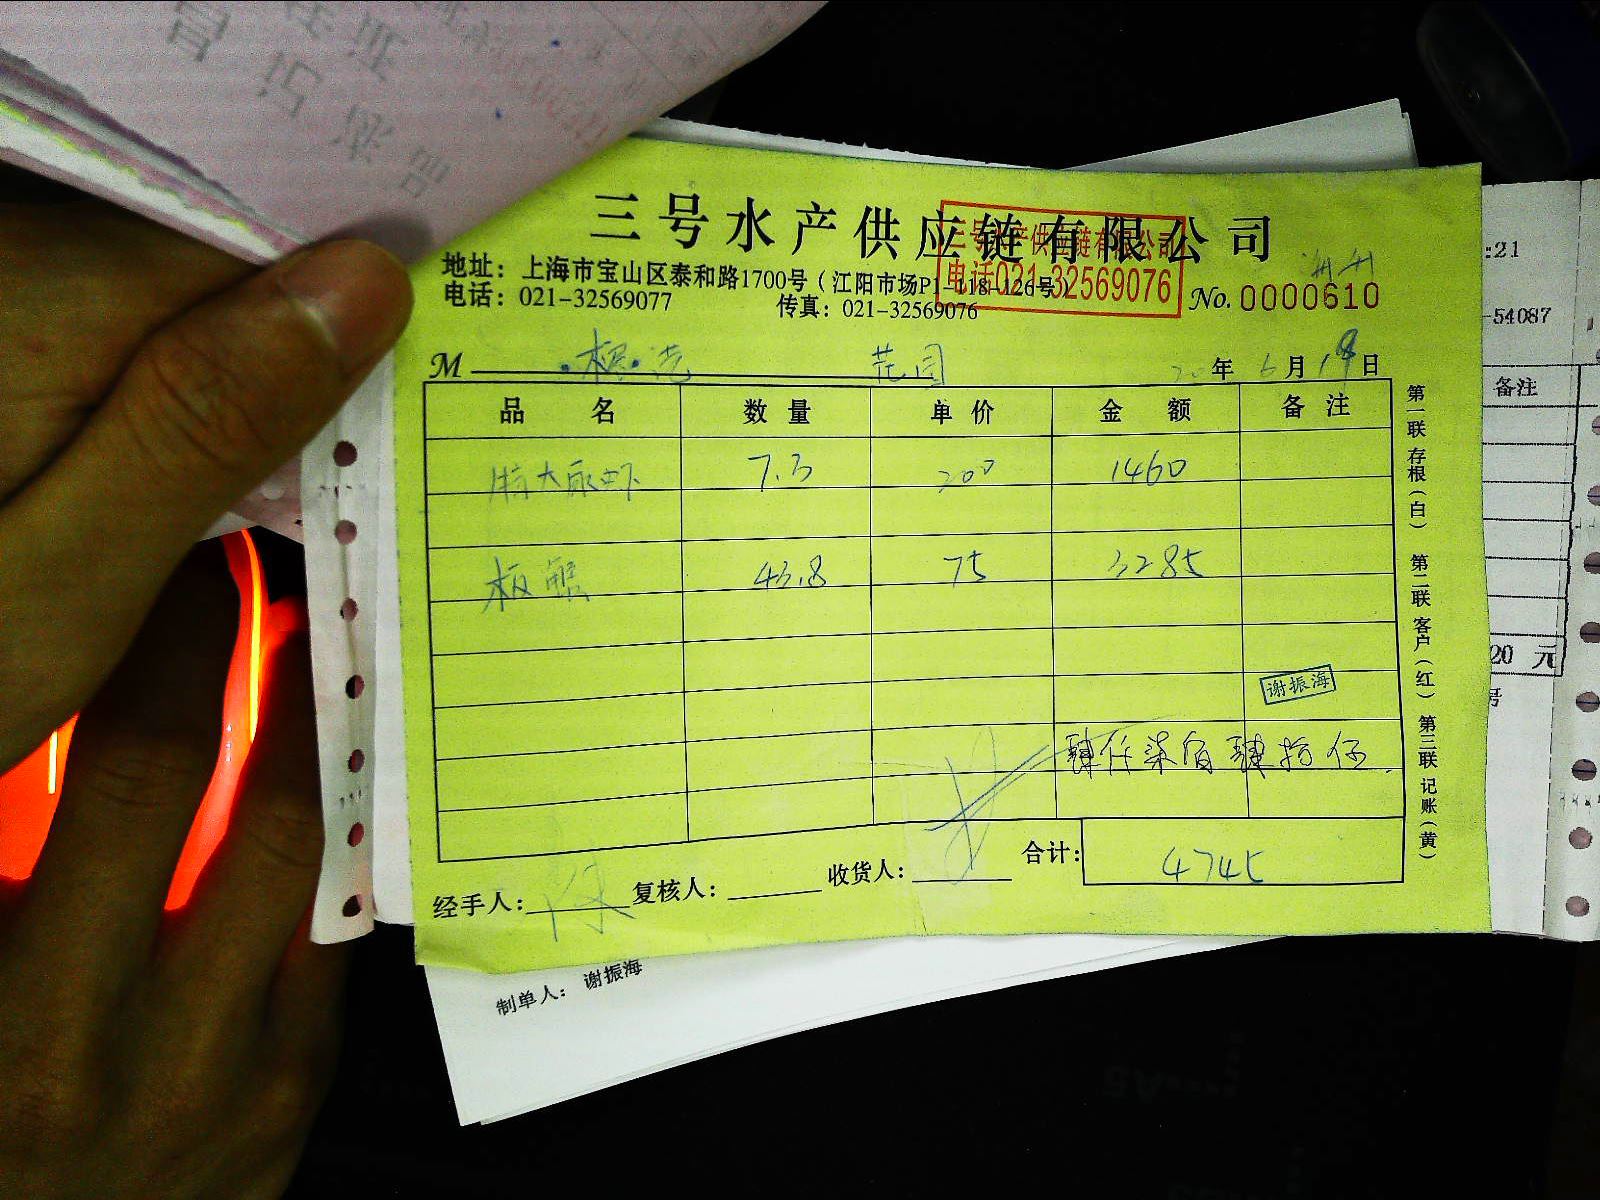 三号水产供应链有限公司
三号水产供应链有限公司
电话021-32569076
地址：上海市宝山区泰和路1700号（江阳市场P1-118-126号）
电话：021-32569077 传真：021-32569076 No. 0000610
M 花园 20年6月19日
品名 数量 单价 金额 备注
特大 虾 7.3 200 1460
板蟹 43.8 75 3285
谢振海
肆仟柒佰肆拾伍
合计：4745
经手人： 复核人： 收货人：
第一联 存根（白） 第二联 客户（红） 第三联 记账（黄）
制单人：谢振海
:21
-54087
备注
20 元
号